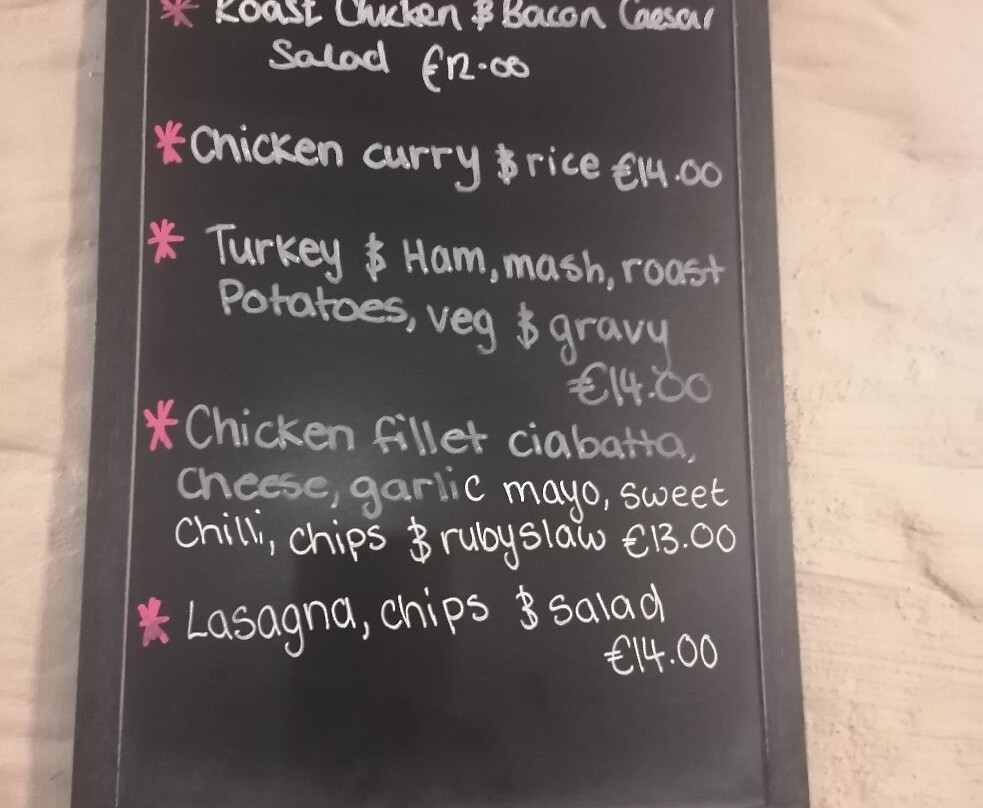 * Roast Chicken & Bacon Caesar
Salad €12.00
* Chicken curry & rice €14.00
* Turkey & Ham, mash, roast
Potatoes, veg & gravy
€14.00
* Chicken fillet ciabatta,
Cheese, garlic mayo, sweet
Chilli, chips & rubyslaw €13.00
* Lasagna, chips & salad
€14.00